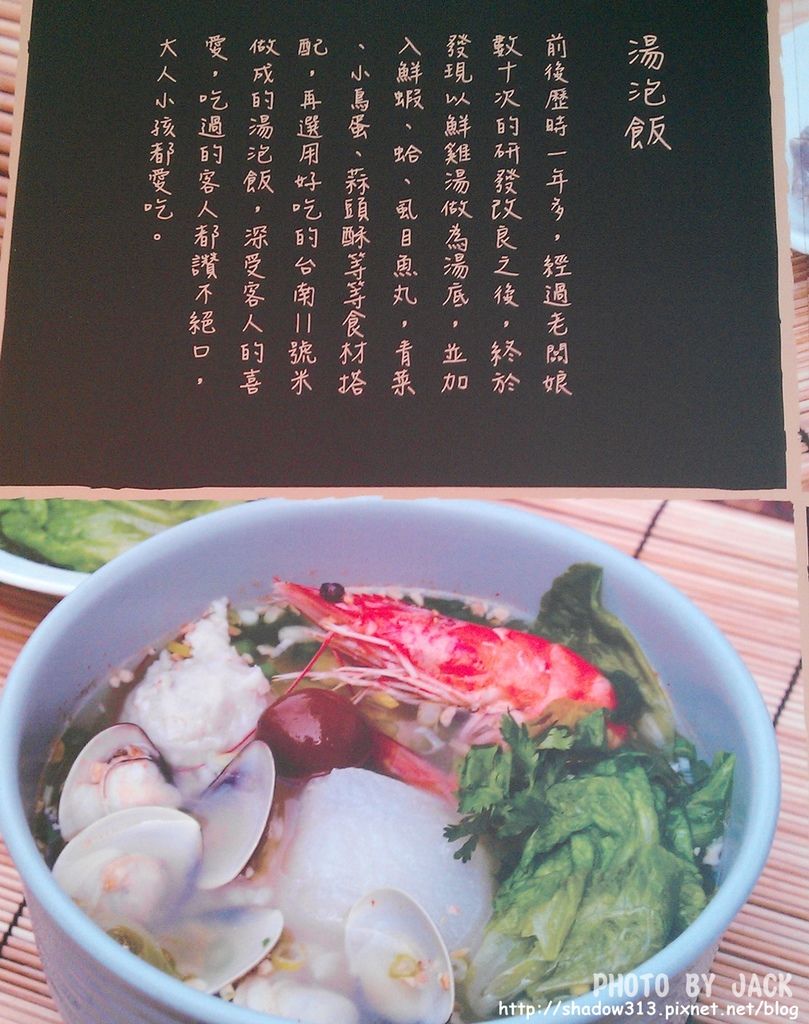 湯泡飯
前後歷時一年多，經過老闆娘
數十次的研發改良之後，終於
發現以鮮雞湯做為湯底，並加
入鮮蝦、蛤、虱目魚丸，青菜
、小鳥蛋、蒜頭酥等等食材搭
配，再選用好吃的台南11號米
做成的湯泡飯，深受客人的喜
愛，吃過的客人都讚不絕口，
大人小孩都愛吃。
PHOTO BY JACK
http://shadow313.pixnet.net/blog